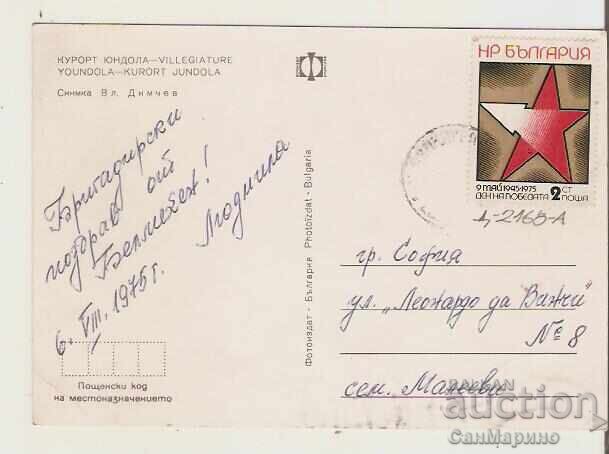 КУРОРТ ЮНДОЛА—VILLEGIATURE
YOUNDOLA—KURORT JUNDOLA
Снимка Вл. Димчев
Бригадирски
поздрав от
Белмекен!
Людмила
6. VIII. 1975г.
Пощенски код
на местоназначението
Фотоиздат - България Photoizdat - Bulgaria
НР БЪЛГАРИЯ
9 МАЙ 1945-1975
ДЕН НА ПОБЕДАТА 2 СТ
ПОЩА
Д-2168-А
гр. София
ул. „Леонардо да Винчи“
№ 8
сем. Маневи
BALKAN
auction
СанМарино